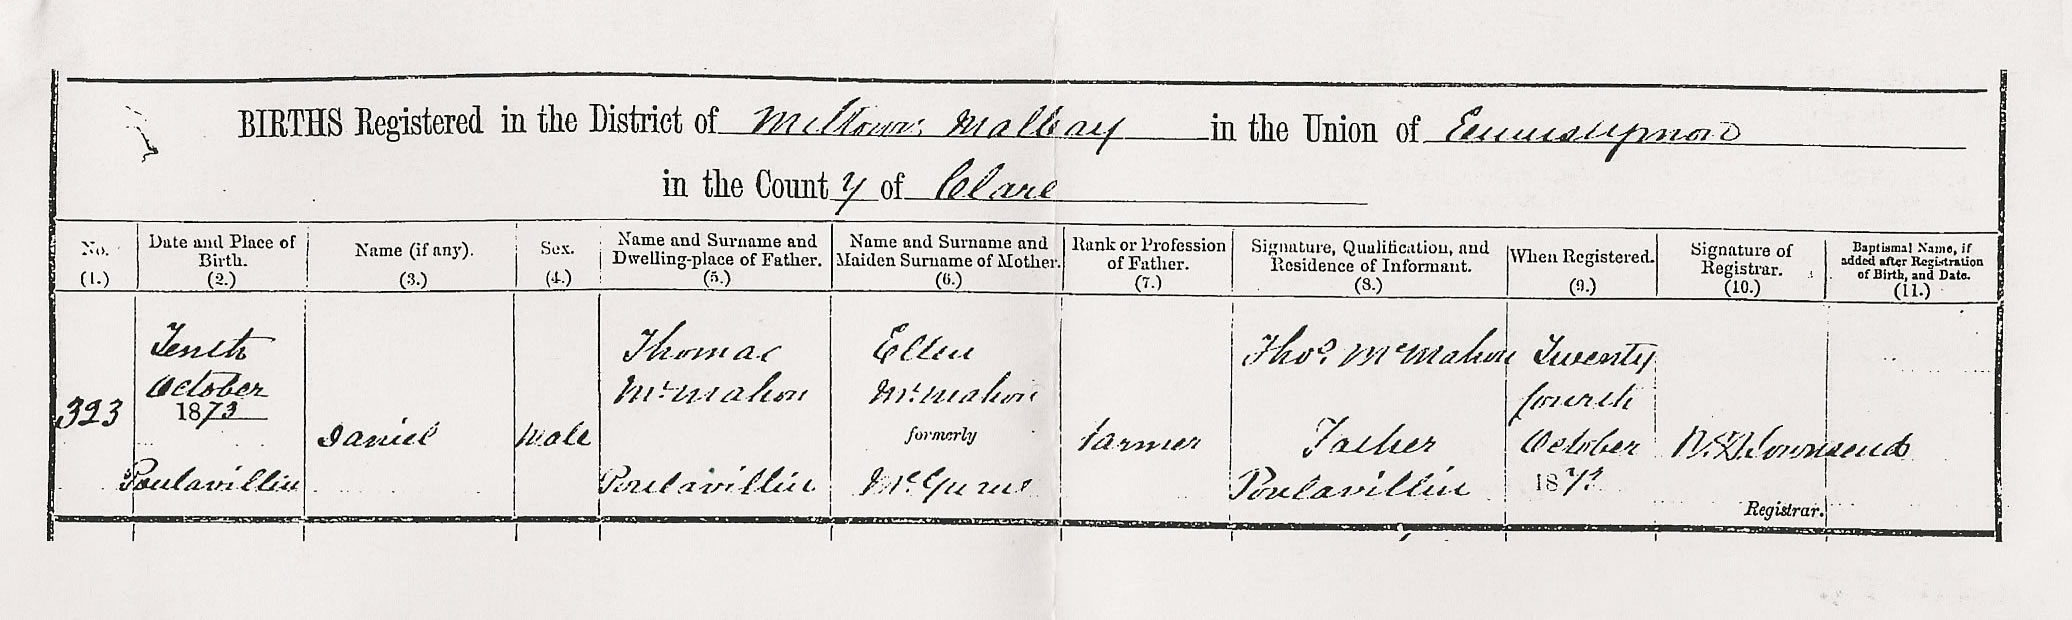 BIRTHS Registered in the District of Miltown Malbay in the Union of Ennistymon
in the County of Clare
No. (1.)
Date and Place of Birth. (2.)
Name (if any). (3.)
Sex. (4.)
Name and Surname and Dwelling-place of Father. (5.)
Name and Surname and Maiden Surname of Mother. (6.)
Rank or Profession of Father. (7.)
Signature, Qualification, and Residence of Informant. (8.)
When Registered. (9.)
Signature of Registrar. (10.)
Baptismal Name, if added after Registration of Birth, and Date. (11.)
323
Tenth
October
1873
Poulavillin
Daniel
Male
Thomas
McMahon
Poulavillin
Ellen
McMahon
formerly
Farmer
Thos McMahon
Father
Poulavillin
Twenty
fourth
October
1873
Townsend
Registrar.